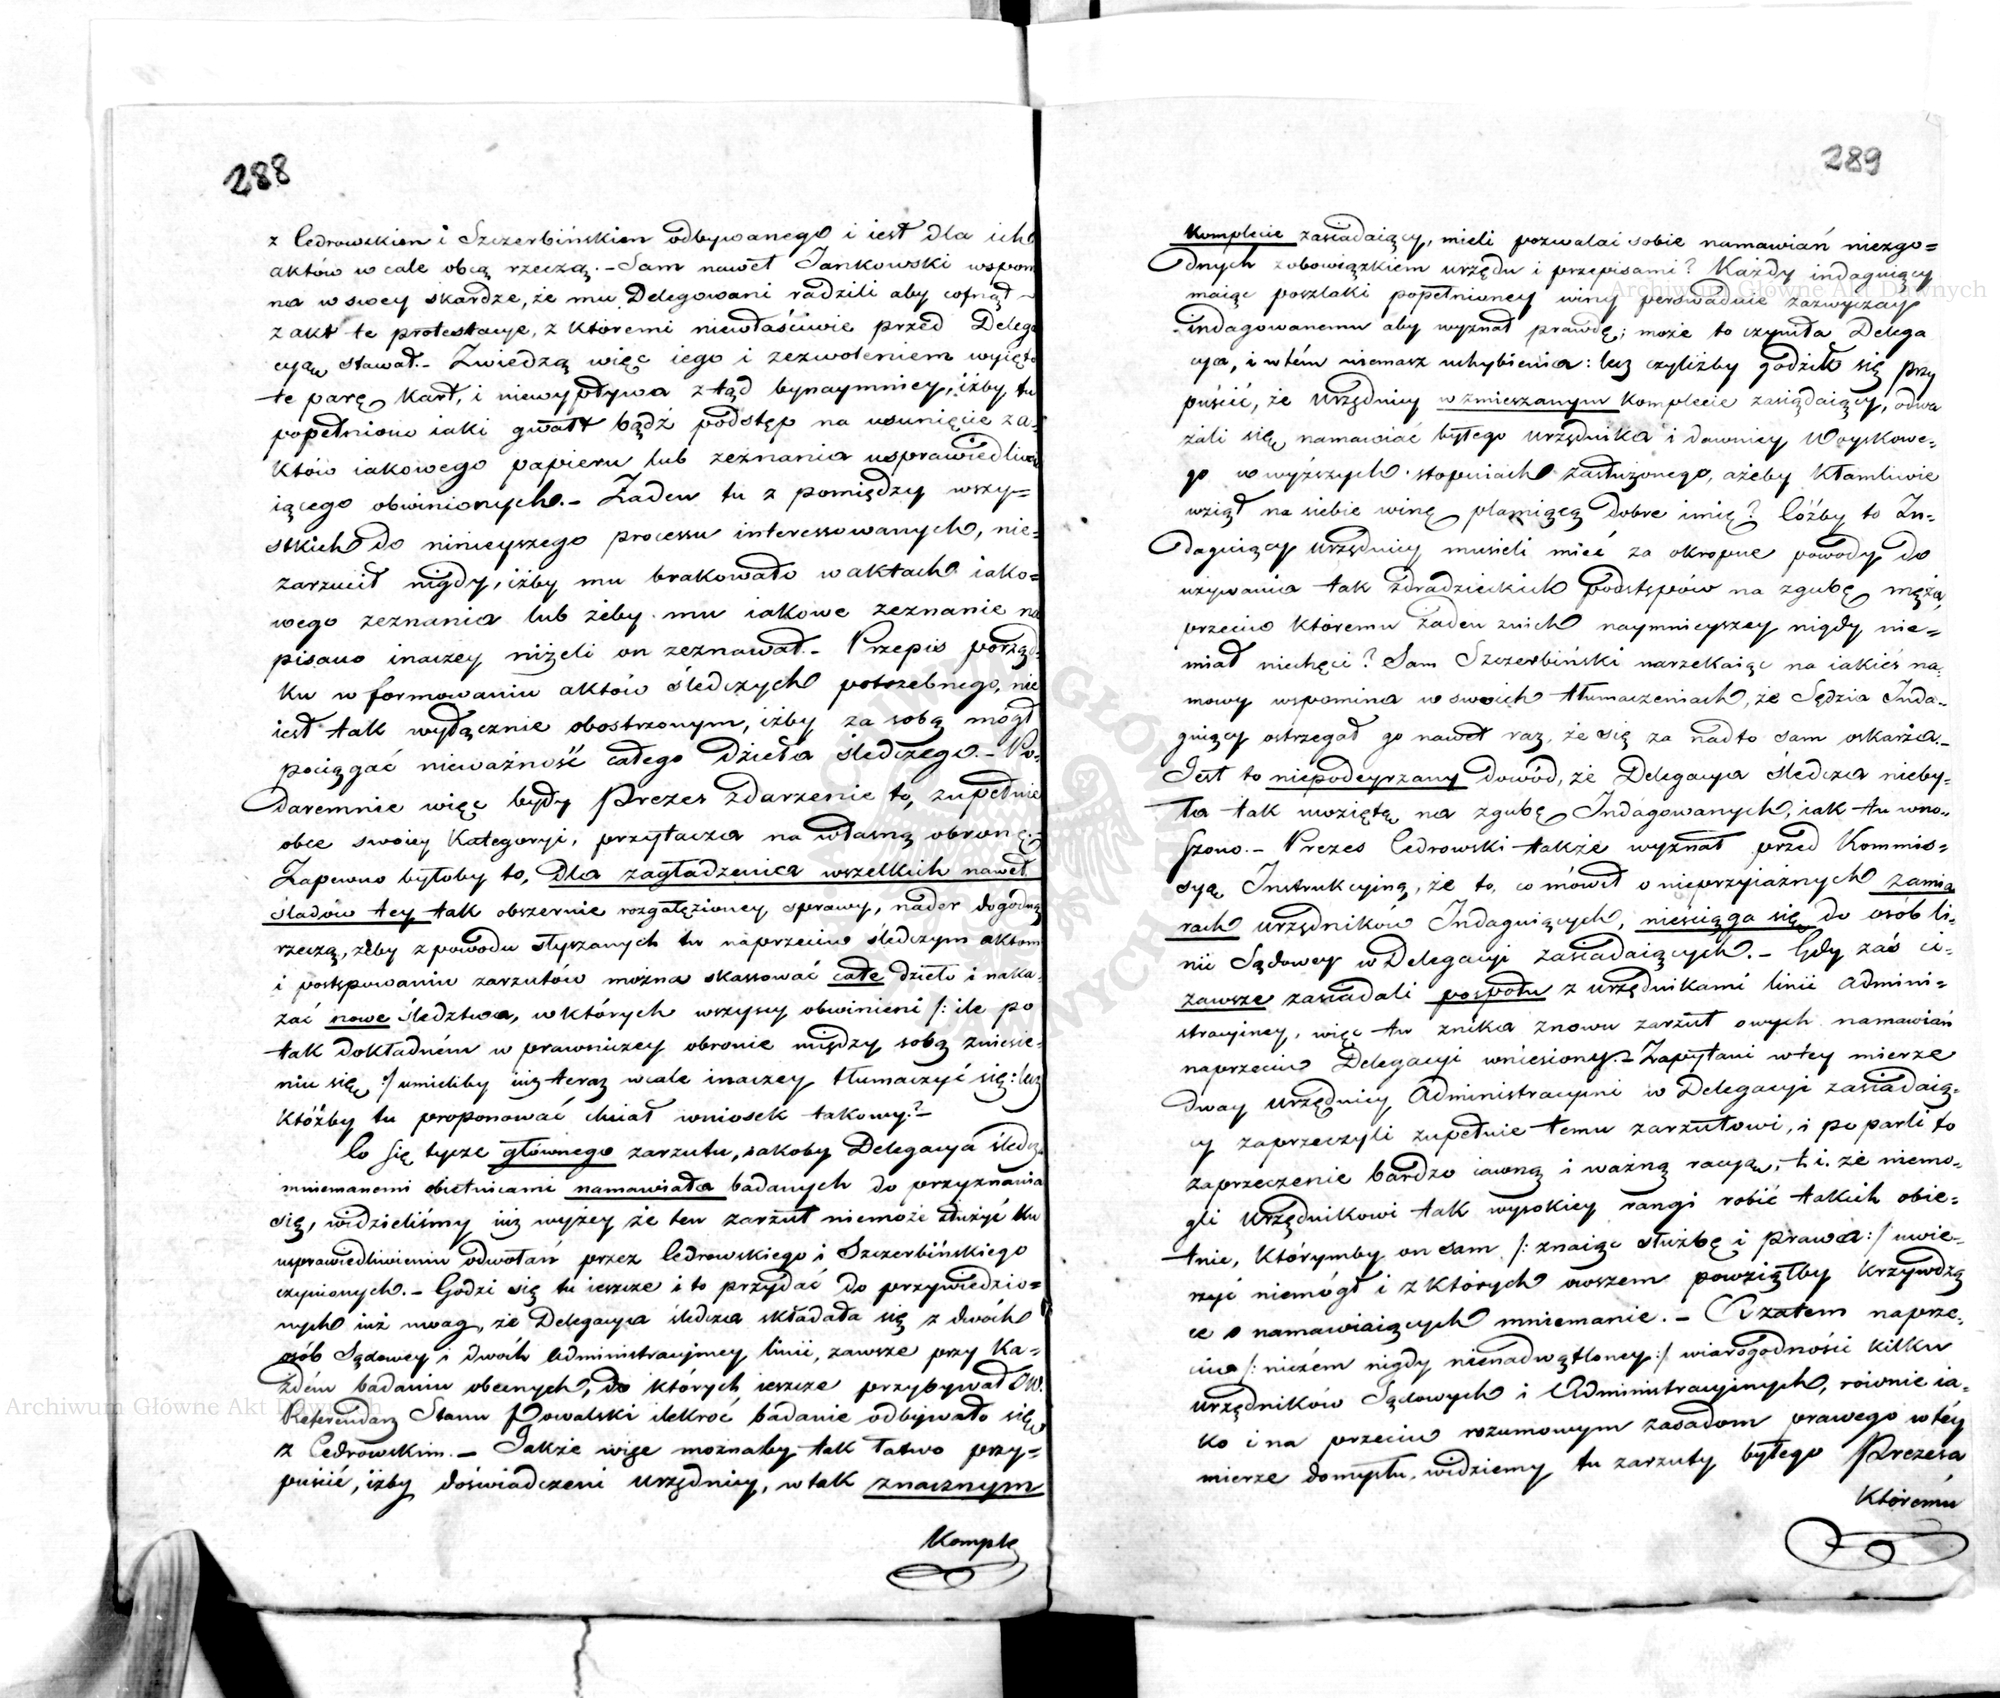 288
z Cedrowskim i Szczerbińskim odbywanego i iest dla ich
aktów wcale obcą rzeczą. – Sam nawet Jankowski wspom
na w swey skardze, że mu Delegowani radzili aby cofnął
z akt te protestacye, z któremi niewłaściwie przed Delega
cyą stawał. – Z wiedzą więc iego i zezwoleniem wyięto
te parę kart, i niewypływa ztąd bynaymniey, iżby tu
popełniono iaki gwałt bądź podstęp na usunięcie za-
któw iakowego papieru lub zeznania usprawiedliwia
iącego obwinionych. – Żaden tu z pomiędzy wszy-
stkich do ninieyszego processu interessowanych, nie-
zarzucił nigdy, iżby mu brakowało w aktach iako-
wego zeznania lub żeby mu iakowe zeznanie na
pisano inaczey niżeli on zeznawał. – Przepis porząd-
ku w formowaniu aktów śledczych potrzebnego, nie
iest tak wyłącznie obostrzonym, iżby za sobą mógł
pociągać nieważność całego dzieła śledczego. – Na-
daremnie więc były Prezes zdarzenie to, zupełnie
obce swoiey kategoryi, przytacza na własną obronę. –
Zapewno byłoby to, dla zagładzenia wszelkich nawet
śladów tey tak obszernie rozgałęzioney sprawy, nader dogodną
rzeczą, żeby z powodu słyszanych tu naprzeciw śledczym aktom
i postępowaniu zarzutów można skassować całe dzieło i naka-
zać nowe śledztwa, w których wszyscy obwinieni /: ile po
tak dokładném w prawniczey obronie między sobą zniesie-
niu się :/ umieliby iuż teraz wcale inaczey tłumaczyć się: lecz
któżby tu proponować chciał wniosek takowy? –
Co się tycze głównego zarzutu, iakoby Delegacya śledcz
mniemanemi obietnicami namawiała badanych do przyznania
się, widzieliśmy iuż wyżey że ten zarzut niemoże służyć ku
usprawiedliwieniu odwołań przez Cedrowskiego i Szczerbińskiego
czynionych. – Godzi się tu ieszcze i to przydać do przywiedzio-
nych iuż uwag, że Delegacya śledcza składała się z dwóch
osób Sądowey i dwóch Administracyiney linii, zawsze przy ka-
żdém badaniu obecnych, do których ieszcze przybywał JW.
Referendarz Stanu Powalski ilekroć badanie odbywało się
z Cedrowskim. – Jakże więc możnaby tak łatwo przy-
puścić, iżby doświadczeni urzędnicy, w tak znacznym
Komple
289
Komplecie zasiadaiący, mieli pozwalać sobie namawiań niezgo-
dnych z obowiązkiem urzędu i przepisami? Każdy indaguiący
maiąc poszlaki popełnioney winy perswaduie zazwyczay
indagowanemu aby wyznał prawdę; może to czyniła Delega
cya, i w tém niemasz uchybienia: lecz czyliżby godziło się przy
puścić, że urzędnicy w zmieszanym komplecie zasiadaiący, odwa
żali się namawiać byłego urzędnika i dawniey Woyskowe-
go w wyższych stopniach zasłużonego, ażeby kłamliwie
wziął na siebie winę plamiącą dobre imię? Cóżby to In-
daguiący urzędnicy musieli mieć za okropne powody do
używania tak zdradzieckich podstępów na zgubę męża,
przeciw któremu żaden z nich naymnieyszey nigdy nie-
miał niechęci? Sam Szczerbiński narzekaiąc na iakieś na-
mowy wspomina w swoich tłumaczeniach, że Sędzia Inda-
guiący ostrzegał go nawet raz, że się za nadto sam oskarża. –
Jest to niepodeyrzany dowód, że Delegacya śledcza nieby-
ła tak uwziętą na zgubę Indagowanych, iak tu wno-
szono. – Prezes Cedrowski także wyznał przed Kommis-
syą Instrukcyiną, że to, co mówił o nieprzyiaźnych zamia
rach urzędników Indaguiących, nieściąga się do osób li-
nii Sądowey w Delegacyi zasiadaiących. – Gdy zaś ci-
zawsze zasiadali pospołu z urzędnikami linii Admini-
stracyiney, więc tu znika znowu zarzut owych namawiań
naprzeciw Delegacyi wniesiony. – Zapytani w tey mierze
dway urzędnicy Administracyini w Delegacyi zasiadaią-
cy zaprzeczyli zupełnie temu zarzutowi, i poparli to
zaprzeczenie bardzo iawną i ważną racyą, t. i. że niemo-
gli urzędnikowi tak wysokiey rangi robić takich obie-
tnic, którymby on sam /: znaiąc służbę i prawa :/ uwie-
rzyć niemógł i z których owszem powziąłby krzywdzą
ce o namawiaiących mniemanie. – A zatem naprze-
ciw /: niczém nigdy nienadwątloney :/ wiarogodności kilku
urzędników Sądowych i Administracyinych, równie ia-
ko i na przeciw rozumowym zasadom prawego w téy
mierze domysłu, widziemy tu zarzuty byłego Prezesa
któremu
Archiwum Główne Akt Dawnych
Archiwum Główne Akt Dawnych